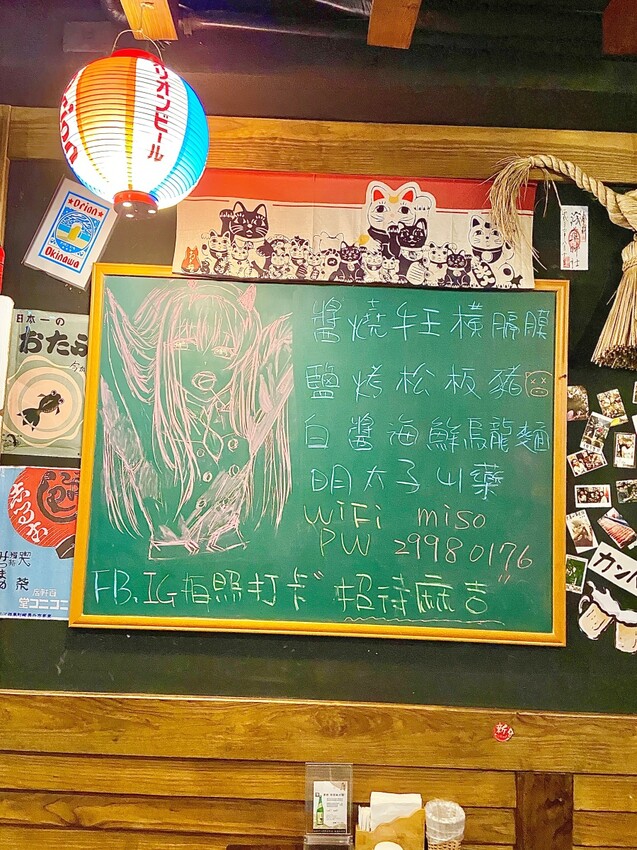 オリオンビール
Orion
★Orion★
Okinawa
日本一の
おたふ
醬燒牛五橫膈膜
鹽烤松板豬
白醬海鮮烏龍麵
明太子山藥
WiFi miso
PW 29980176
FB.IG拍照打卡"招待麻吉"
カン
堂ココニ